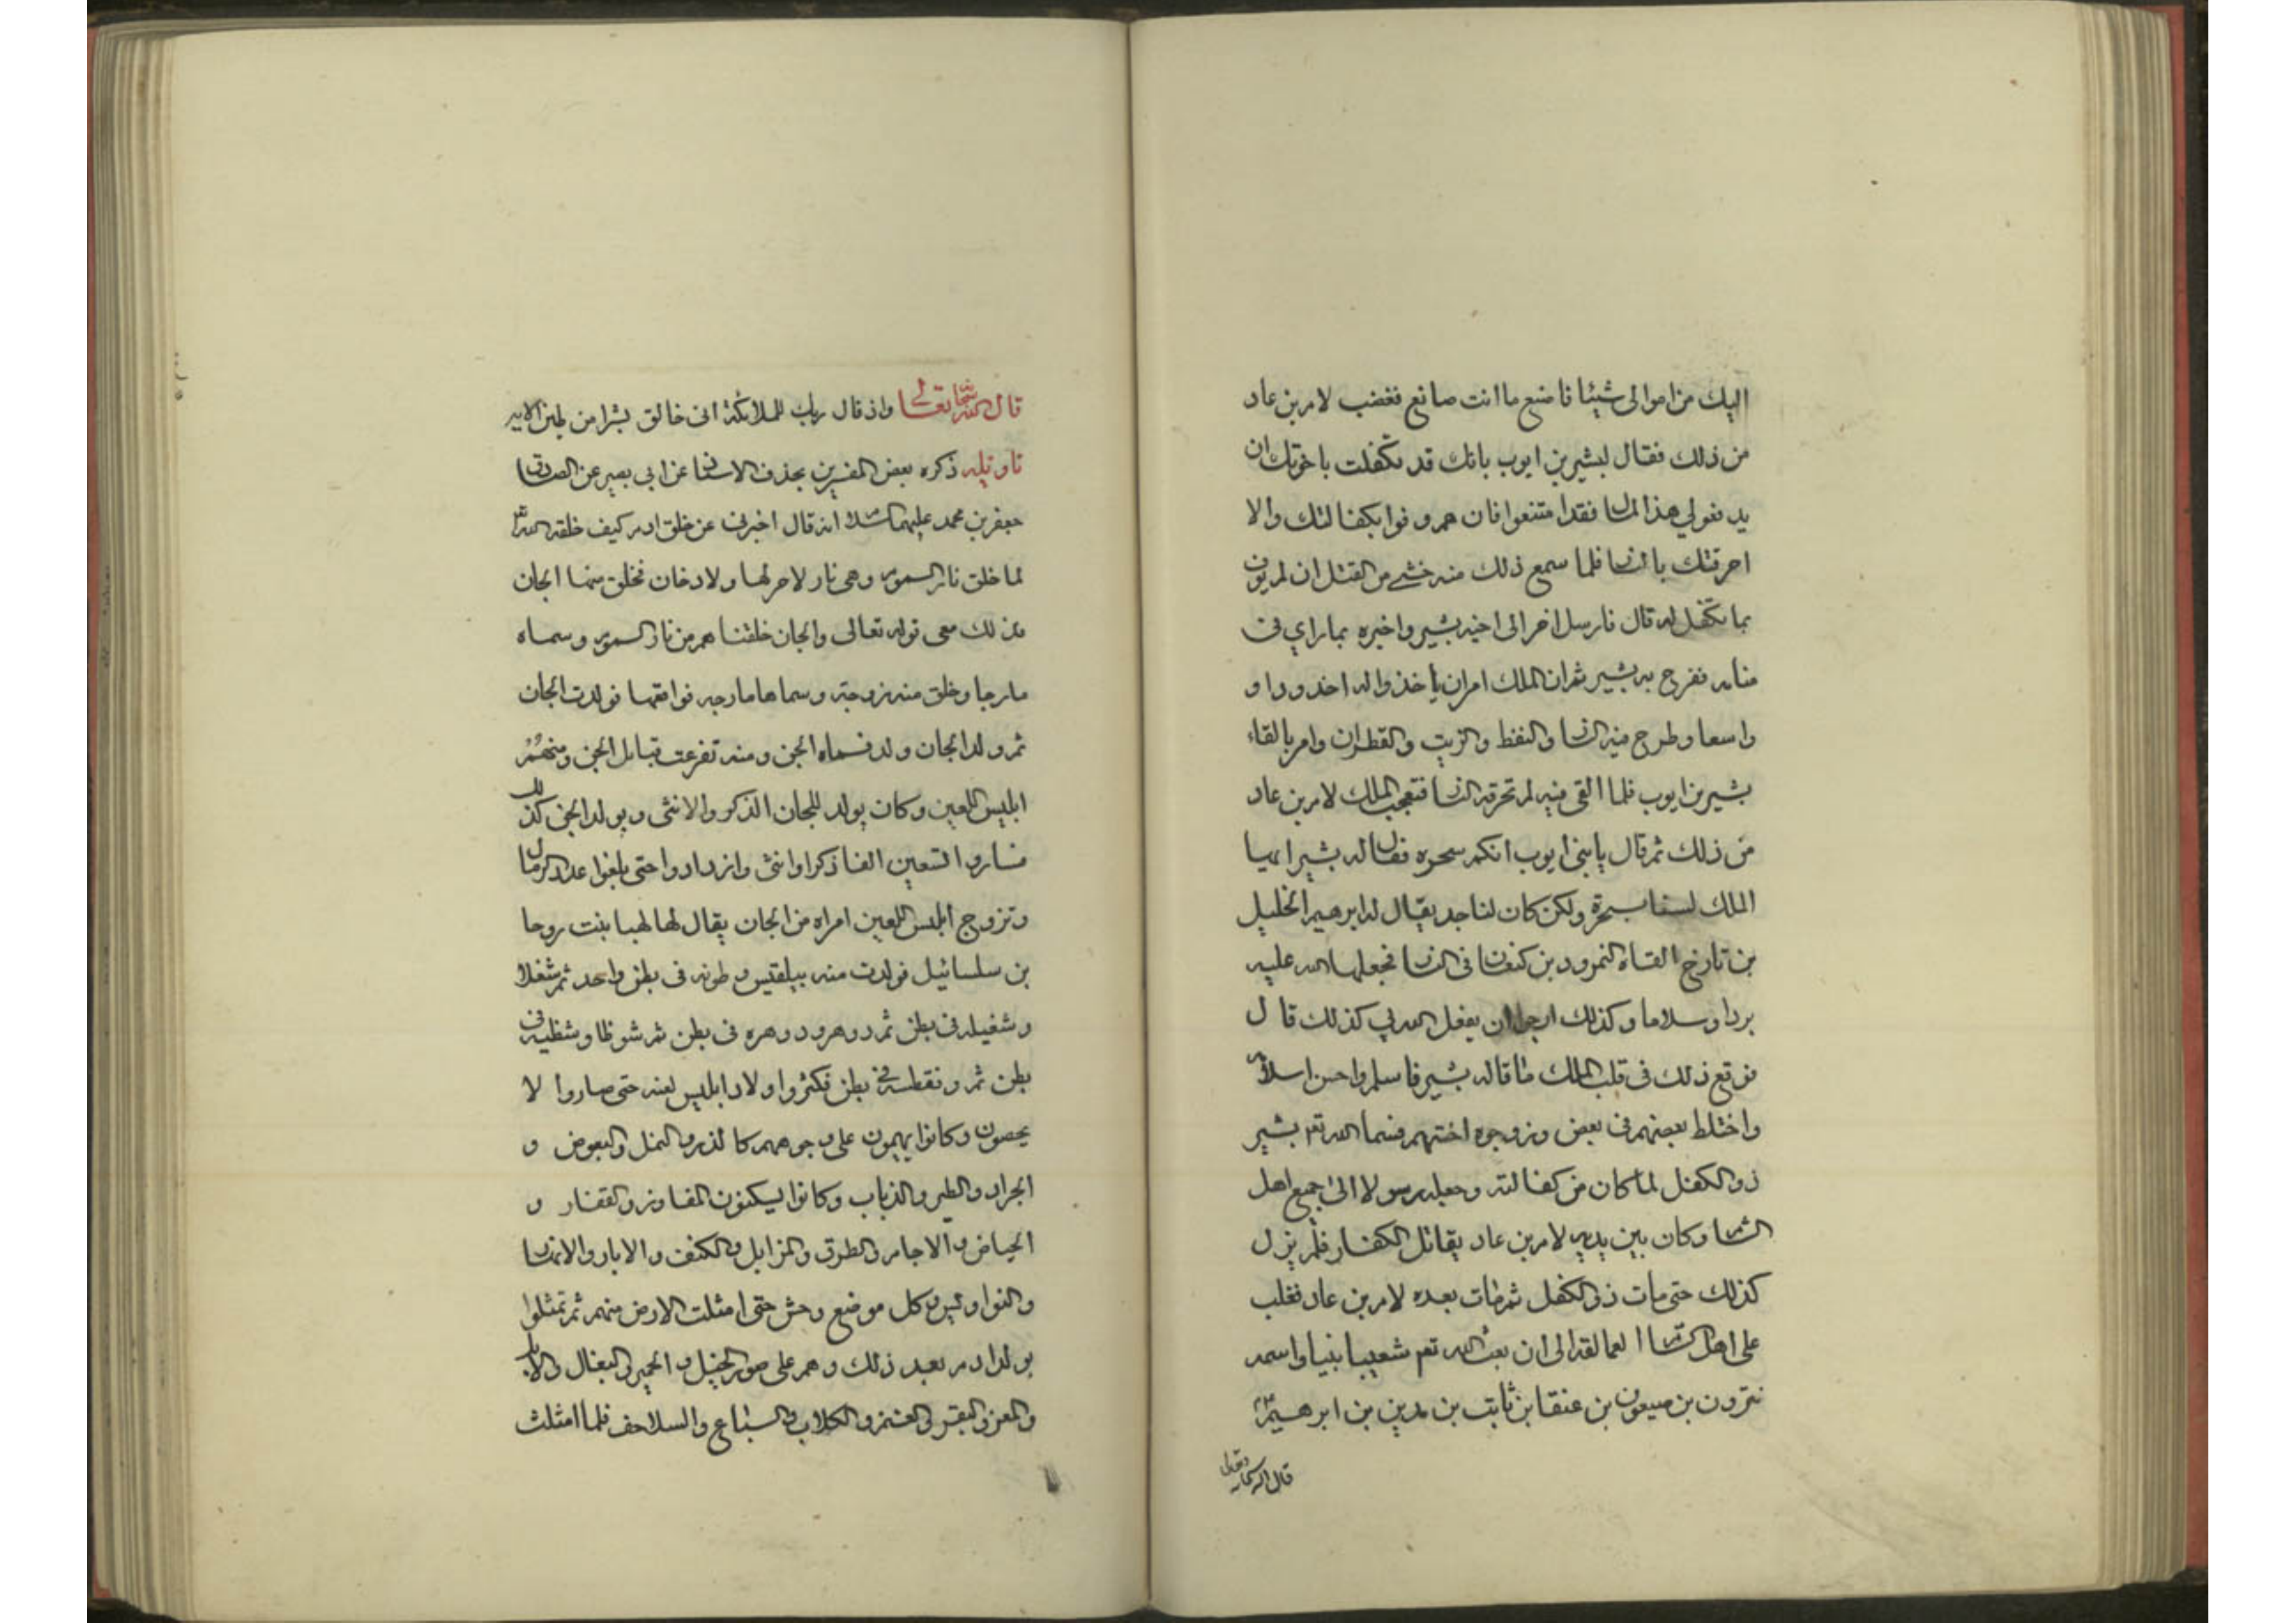 اليك من اموالى شيئا فاصنع ما انت صانع فغضب لام بن عاد
من ذلك فقال لبشير بن ايوب بانك قد تكفلت باخوتك ان
يدفعو لي هذا المال فقد امتنعوا فان هم وفوا بكفالتك والا
احرقتك بالنار فلما سمع ذلك منه خشى من القتل ان لم يوف
بما تكفل له قال فارسل اخر الى اخيه بشير واخبره بما راي فى
منامه ففرح به بشير ثم ان الملك امر ان ياخذ واله اخدودا و
واسعا وطرح فيه النار والنفط والزيت والقطران وامر بالقاء
بشير بن ايوب فلما القى فيه لم تحرقه النار فتعجب الملك لام بن عاد
من ذلك ثم قال يا بنى ايوب انكم سحره فقال له بشير ايها
الملك لسنا بسحرة ولكن كان لنا جد يقال له ابرهيم الخليل
بن تارخ القاه النمرود بن كنعان فى النار فجعلها الله عليه
بردا وسلاما وكذلك ارجوا ان يفعل الله بي كذلك قال
فوقع ذلك فى قلب الملك ما قاله بشير فاسلم واحسن اسلامه
واختلط بعضهم فى بعض وزوجوه اختهم فسما الله تع بشير
ذو الكفل لما كان من كفالته وجعله رسولا الى جميع اهل
الشام وكان بين يديه لام بن عاد يقاتل الكفار فلم يزل
كذلك حتى مات ذى الكفل ثم مات بعده لام بن عاد فغلب
على اهل الشام العمالقه الى ان بعث الله تع شعيبا نبيا واسمه
نترون بن صيعون بن عنقا بن ثابت بن مدين بن ابرهيم
قال الله سبحانه وتعالى
قال الله سبحانه تعالى واذ قال ربك للملائكة انى خالق بشرا من طين الايه
تاويله ذكره بعض المفسرين بحذف الاسناد عن ابي بصير عن الصادق
جعفر بن محمد عليهما السلام انه قال اخبرنى عن خلق ادم كيف خلقه الله
لما خلق نار السموم وهى نار لا حر لها ولا دخان فخلق منها الجان
فذلك معى قوله تعالى والجان خلقناهم من نار السموم وسماه
مارجا وخلق منه زوجته وسماها مارجه فواقعها فولدت الجان
ثم ولد الجان ولد فسماه الجن ومنه تفرعت قبايل الجن ومنهم
ابليس اللعين وكان يولد للجان الذكر والانثى ويولد الجن كذلك
فصاروا تسعين الفا ذكرا وانثى وازدادوا حتى بلغوا عدد الرمال
وتزوج ابليس اللعين امراه من الجان يقال لها لهبا بنت روحا
بن سلسائيل فولدت منه بيلقيس وطونه فى بطن واحد ثم شغلا
وشغيله فى بطن ثم دوهر ودوهره فى بطن ثم شوظا وشظيه فى
بطن ثم ونقطسه فى بطن فكثروا اولاد ابليس لعنه حتى صاروا لا
يحصون وكانوا يهيمون على وجوههم كالذر والنمل والبعوض و
الجراد والطير والذباب وكانوا يسكنون المفاوز والقفار و
الحياض والاجام والطرق والمزابل والكنف والابار والانهار
والنواويس وكل موضع وحش حتى امتلت الارض منهم ثم تمثلوا
بولد ادم بعد ذلك وهم على صور الخيل والحمير والبغال والابل
والمعز والبقر والغنم والكلاب والسباع والسلاحف فلما امتلت